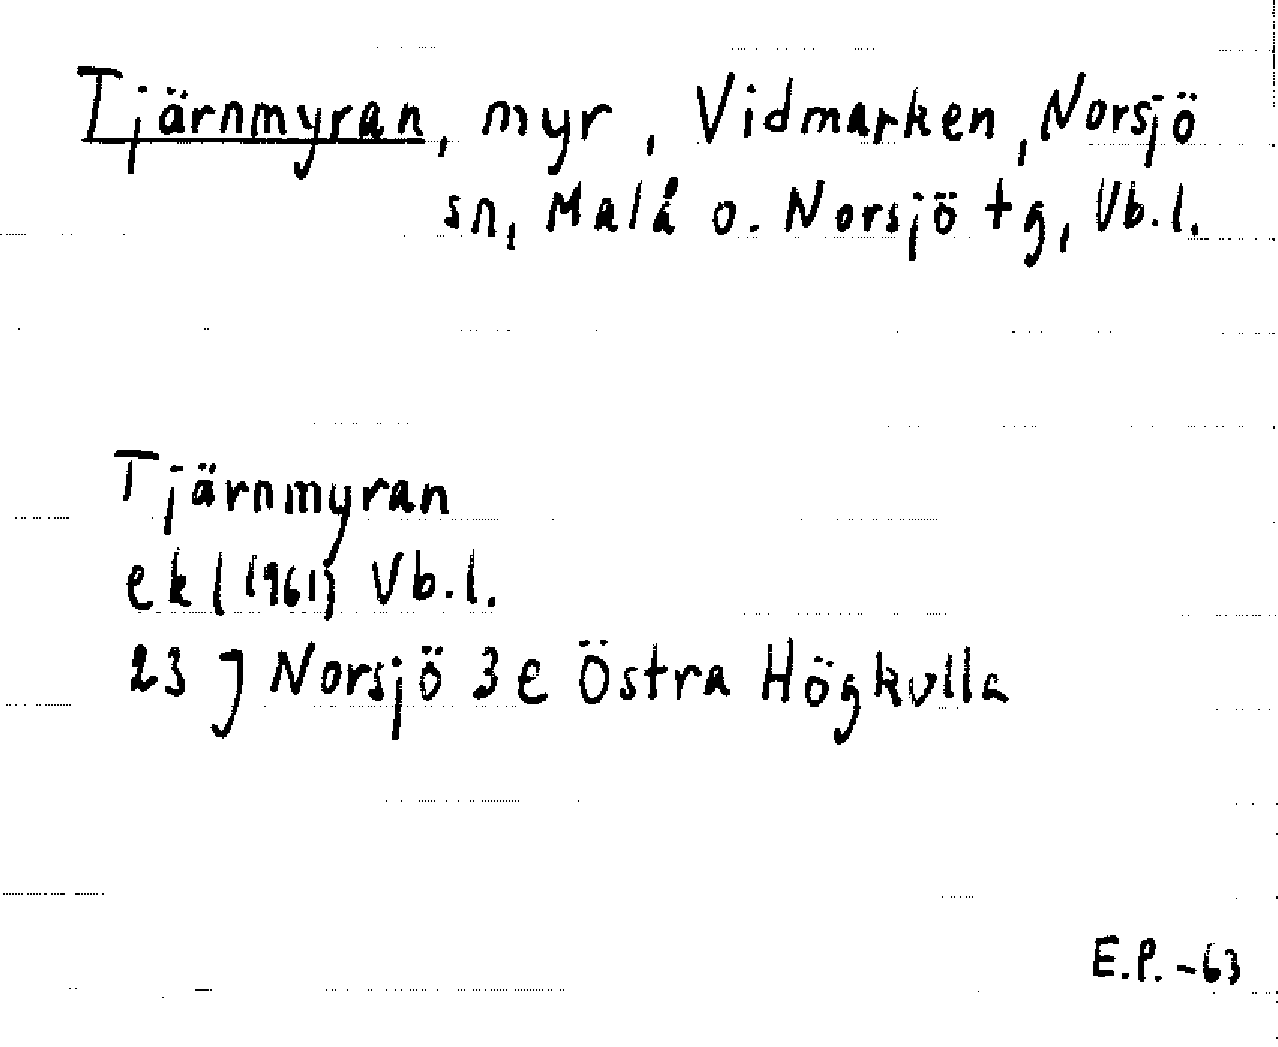 Tjärnmyran, myr, Vidmarken, Norsjö
sn, Malå o. Norsjö tg, Vb.l.
Tjärnmyran
ek (1961) Vb.l.
23 J Norsjö 3e Östra Högkulla
E.P. -63